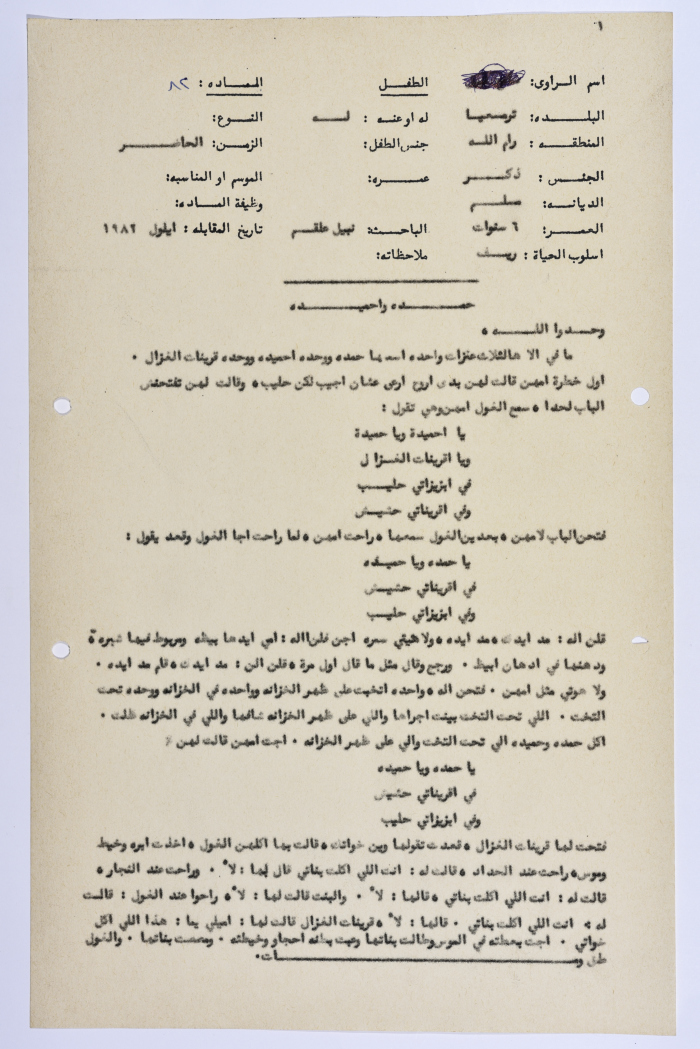 ١
اسم الراوى: الطفل المـاده : ٨٢
البلـده: ترمسعيا له او عنه : لـه النـوع:
المنطقـه : رام اللـه جنس الطفل: الزمن: الحاضـر
الجنـس : ذكـر عمـره: الموسم او المناسبه:
الديانـه: مسلـم وظيفة المـاده:
العمـر: ٦ سنوات الباحـث: نبيل علقم تاريخ المقابله : ايلول ١٩٨٢
اسلوب الحياة : ريـف ملاحظاته:
حمـده واحميـده
وحـدوا اللـه ٠
ما في الا هالثلاث عنزات واحده اسمها حمده ووحده احميده ووحده قرينات الغزال ٠
اول خطرة امهن قالت لهن بدى اروح ارعى عشان اجيب لكن حليب ٠ وقالت لهن تفتحنش
الباب لحدا ٠ سمع الغول امهن وهي تقول :
يا احميدة ويا حميدة
ويا اقرينات الغـزال
في ابزيزاتي حليـب
وفي اقريناتي حشيـش
فتحن الباب لامهن ٠ بعدين الغول سمعها ٠ راحت امهن ٠ لما راحت اجا الغول وقعد يقول :
يا حمده ويا حميـده
في اقريناتي حشيـش
وفي ابزيزاتي حليـب
قلن اله : مد ايدك ٠ مد ايده ٠ ولا هيتي سمره اجن قلن اله : امي ايدها بيظه ومربوط فيها شبرة
ودهنها في ادهان ابيظ ٠ ورجع وقال مثل ما قال اول مرة ٠ قلن الن : مد ايدك ٠ قام مد ايده ٠
ولا هوتي مثل امهن ٠ فتحن اله ٠ واحده اتخبت على ظهر الخزانه وواحده في الخزانه ووحده تحت
التخت ٠ اللي تحت التخت بينت اجراها واللي على ظهر الخزانه شافها واللي في الخزانه ظلت ٠
اكل حمده وحميده الي تحت التخت والي على ظهر الخزانه ٠ اجت امهن قالت لهن :
يا حمده ويا حميده
في اقريناتي حشيش
وفي ابزيزاتي حليب
فتحت لها قرينات الغزال ٠ قعدت تقولها وين خواتك ٠ قالت بها اكلهن الغول ٠ اخذت ابره وخيط
وموس ٠ راحت عند الحداد ٠ قالت له : انت اللي اكلت بناتي قال لها : لا ٠ وراحت عند النجار ٠
قالت له : انت اللي اكلت بناتي ٠ قالها : لا ٠ والبنت قالت لها : لا ٠ راحوا عند الغول : قالت
له ٠ انت اللي اكلت بناتي ٠ قالها : لا ٠ قرينات الغزال قالت لها : اميلي يما : هذا اللي اكل
خواتي ٠ اجت بعطته في الموس وطالت بناتها وعبت بطنه احجار وخيطته ٠ ومصعت بناتها ٠ والغول
طق ومـات ٠